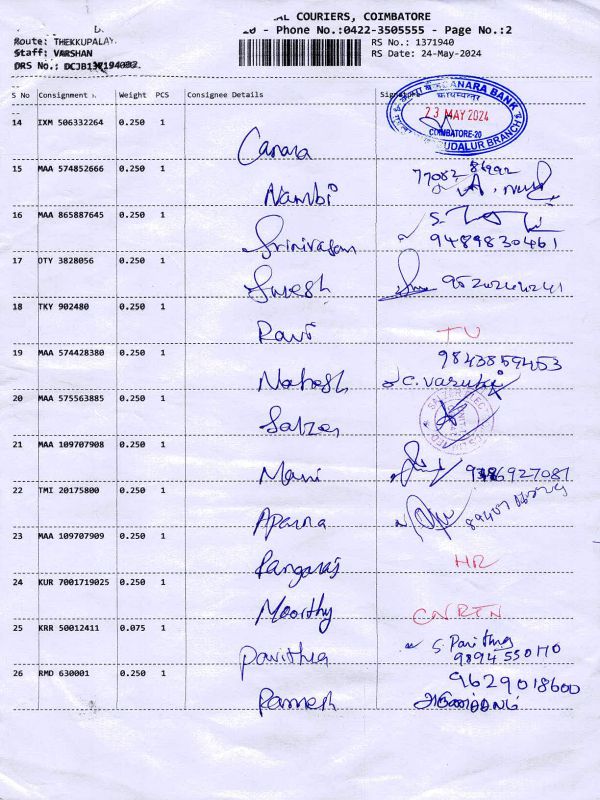 AL COURIERS, COIMBATORE
20 - Phone No.:0422-3505555 - Page No.:2
Route: THEKKUPALAY
Staff: VARSHAN
DRS No.: DCJB1371940
RS No.: 1371940
RS Date: 24-May-2024
S No Consignment Weight PCS Consignee Details Sign
CANARA BANK
23 MAY 2024
COIMBATORE-20
GUDALUR BRANCH
14 IXM 506332264 0.250 1 Canara
15 MAA 574852666 0.250 1 Nambi 77082 86992
16 MAA 865887645 0.250 1 Srinivasan 9489830461
17 OTY 3828056 0.250 1 Suresh
18 TKY 902480 0.250 1 Ravi
19 MAA 574428380 0.250 1 Mahesh 9843859453
20 MAA 575563885 0.250 1 Salzer
21 MAA 109707908 0.250 1 Mani
22 TMI 20175800 0.250 1 Aparna
23 MAA 109707909 0.250 1 Rangaraj
24 KUR 7001719025 0.250 1 Moorthy CN RTN
25 KRR 50012411 0.075 1 Pavithra S. Pavithra 9894550170
26 RMD 630001 0.250 1 Ramesh 9629018600